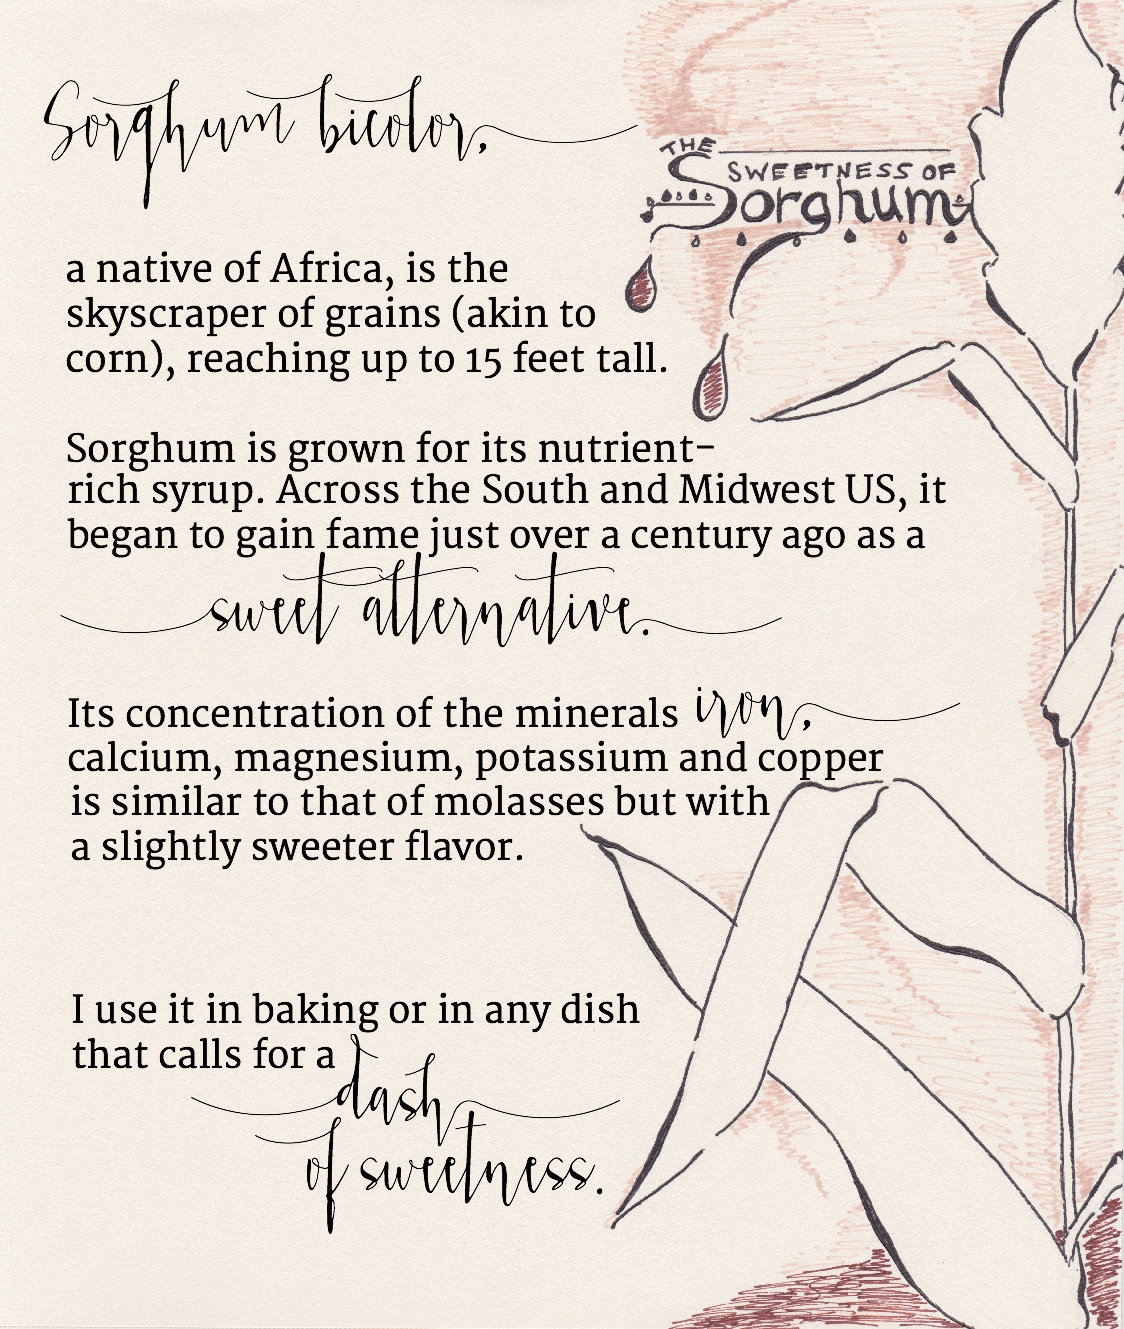 Sorghum bicolor,
THE
SWEETNESS OF
Sorghum
a native of Africa, is the
skyscraper of grains (akin to
corn), reaching up to 15 feet tall.
Sorghum is grown for its nutrient-
rich syrup. Across the South and Midwest US, it
began to gain fame just over a century ago as a
sweet alternative.
Its concentration of the minerals iron,
calcium, magnesium, potassium and copper
is similar to that of molasses but with
a slightly sweeter flavor.
I use it in baking or in any dish
that calls for a
dash
of sweetness.